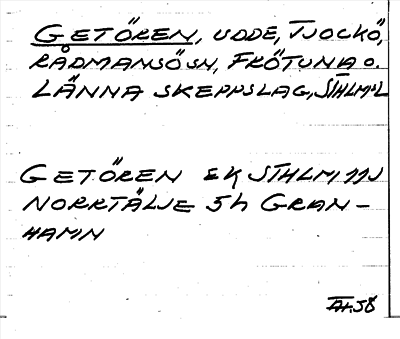 GETÖREN, UDDE, TJOCKÖ,
RÅDMANSÖ SN, FRÖTUNA O.
LÄNNA SKEPPSLAG, STHLMSL
GETÖREN EK STHLM 11J
NORRTÄLJE 5h GRAN-
HAMN